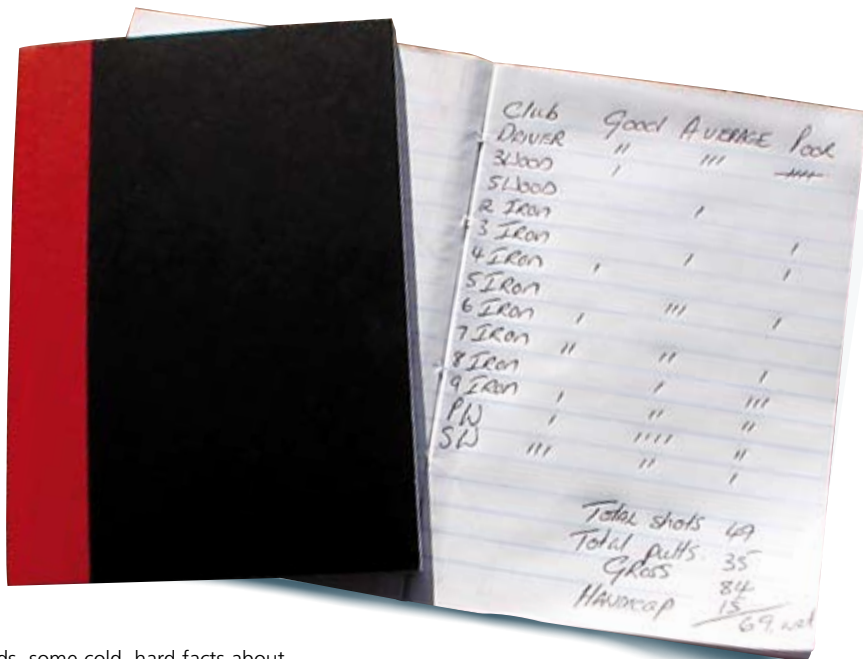 Club Good AVERAGE Poor
DRIVER || ||| ||||
3 Wood |
5 Wood |
2 Iron |
3 Iron | |
4 Iron |
5 Iron ||| |
6 Iron |
7 Iron || || |
8 Iron | |||
9 Iron | || ||
PW | |||| ||
SW ||| || |
Total shots 49
Total putts. 35
Gross 84
Handicap 15
69
some cold, hard facts about